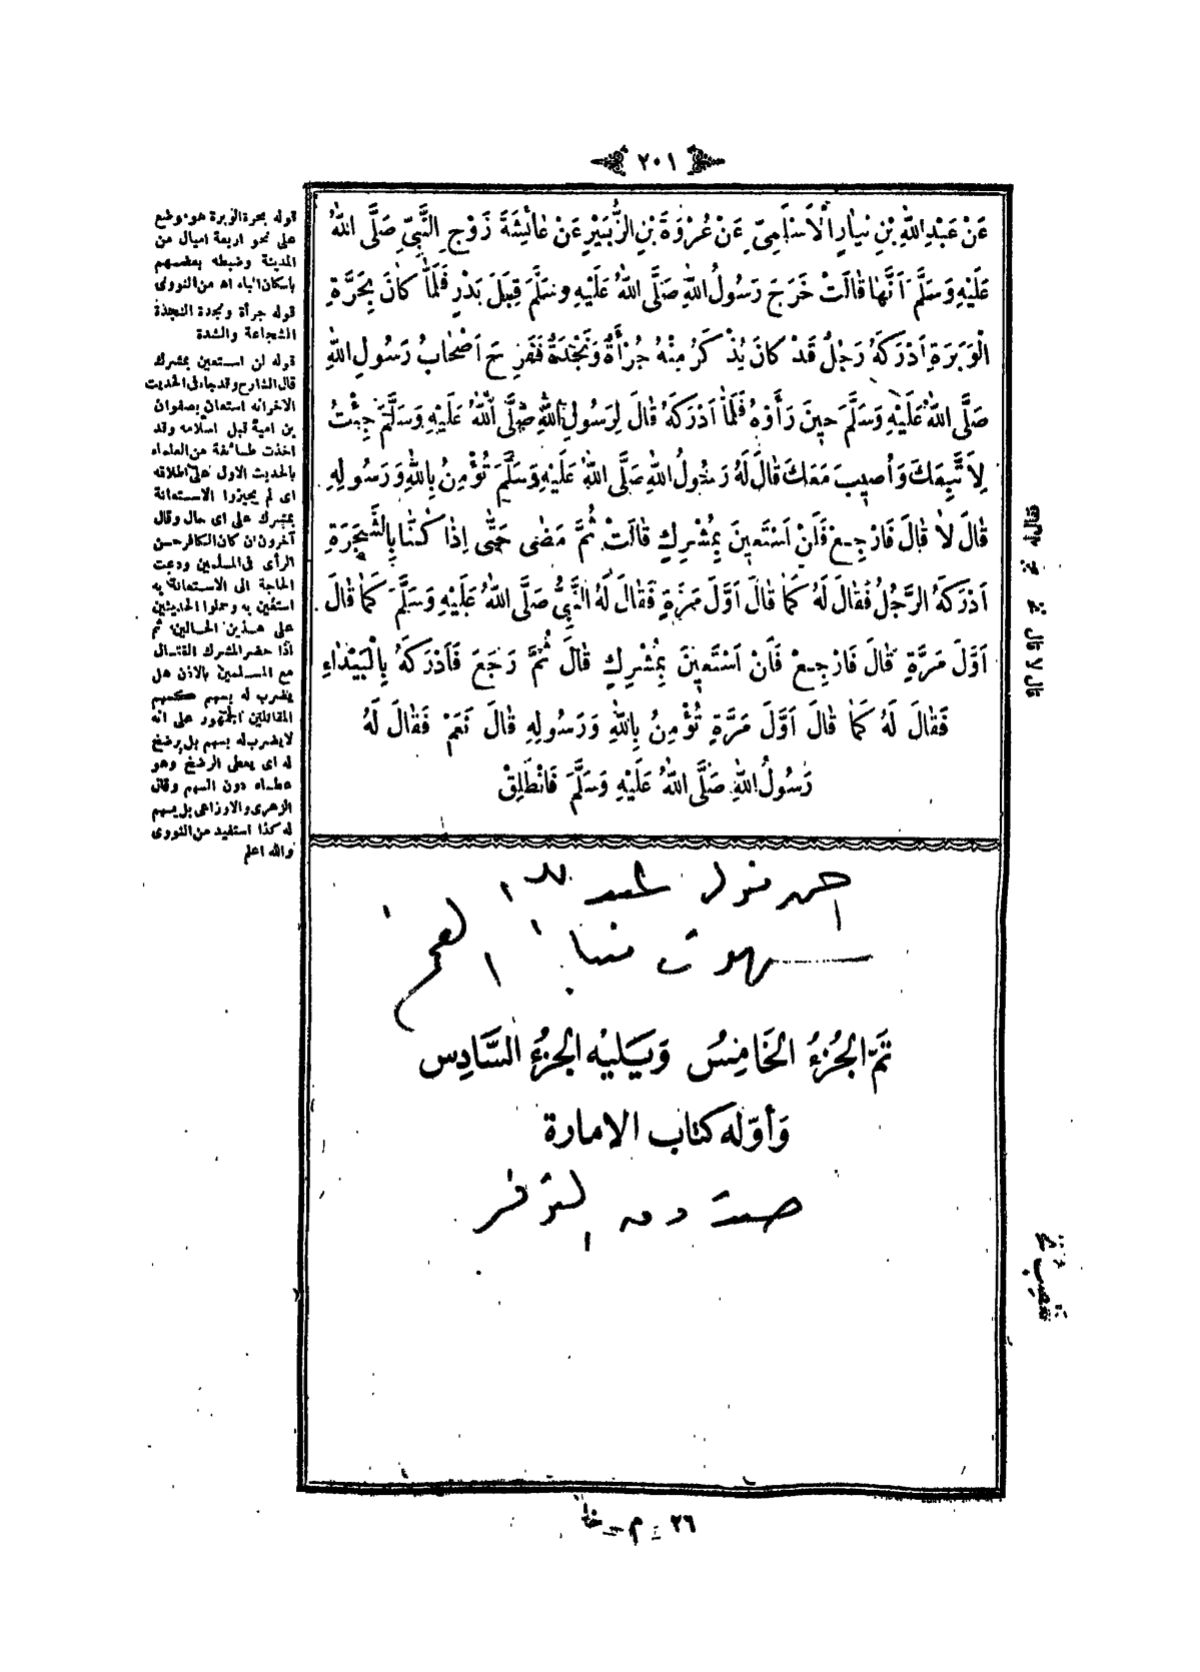 ٢٠١
عَنْ عَبْدِ اللهِ بْنِ نِيَارٍ الْأَسْلَمِيِّ عَنْ عُرْوَةَ بْنِ الزُّبَيْرِ عَنْ عَائِشَةَ زَوْجِ النَّبِيِّ صَلَّى اللهُ
عَلَيْهِ وَسَلَّمَ اَنَّهَا قَالَتْ خَرَجَ رَسُولُ اللهِ صَلَّى اللهُ عَلَيْهِ وَسَلَّمَ قِبَلَ بَدْرٍ فَلَمَّا كَانَ بِحَرَّةِ
الْوَبَرَةِ اَدْرَكَهُ رَجُلٌ قَدْ كَانَ يُذْكَرُ مِنْهُ جُرْأَةٌ وَنَجْدَةٌ فَفَرِحَ اَصْحَابُ رَسُولِ اللهِ
صَلَّى اللهُ عَلَيْهِ وَسَلَّمَ حِينَ رَأَوْهُ فَلَمَّا اَدْرَكَهُ قَالَ لِرَسُولِ اللهِ صَلَّى اللهُ عَلَيْهِ وَسَلَّمَ جِئْتُ
لِاَتَّبِعَكَ وَاُصِيبَ مَعَكَ قَالَ لَهُ رَسُولُ اللهِ صَلَّى اللهُ عَلَيْهِ وَسَلَّمَ تُؤْمِنُ بِاللهِ وَرَسُولِهِ
قَالَ لَا قَالَ فَارْجِعْ فَلَنْ اَسْتَعِينَ بِمُشْرِكٍ قَالَتْ ثُمَّ مَضٰى حَتّٰى اِذَا كُنَّا بِالشَّجَرَةِ
اَدْرَكَهُ الرَّجُلُ فَقَالَ لَهُ كَمَا قَالَ اَوَّلَ مَرَّةٍ فَقَالَ لَهُ النَّبِيُّ صَلَّى اللهُ عَلَيْهِ وَسَلَّمَ كَمَا قَالَ
اَوَّلَ مَرَّةٍ قَالَ فَارْجِعْ فَلَنْ اَسْتَعِينَ بِمُشْرِكٍ قَالَ ثُمَّ رَجَعَ فَاَدْرَكَهُ بِالْبَيْدَاءِ
فَقَالَ لَهُ كَمَا قَالَ اَوَّلَ مَرَّةٍ تُؤْمِنُ بِاللهِ وَرَسُولِهِ قَالَ نَعَمْ فَقَالَ لَهُ
رَسُولُ اللهِ صَلَّى اللهُ عَلَيْهِ وَسَلَّمَ فَانْطَلِقْ
تَمَّ الجُزءُ الخَامِسُ وَيَليْه الجزءُ السَّادِس
وَأوّله كتاب الامارة
قوله بحرة الوبرة هو موضع
على نحو اربعة اميال من
المدينة وضبطه بعضهم
باسكان الباء اه من النووى
قوله جرأة ونجدة النجدة
الشجاعة والشدة
قوله لن استعين بمشرك
قال الشارح وقد جاء فى الحديث
الآخر انه استعان بصفوان
بن امية قبل اسلامه وقد
اخذت طائفة من العلماء
بالحديث الاول على اطلاقه
اى لم يجيزوا الاستعانة
بمشرك على اى حال وقال
آخرون ان كان الكافر حسن
الرأى فى المسلمين ودعت
الحاجة الى الاستعانة به
استعين به وحملوا الحديثين
على هذين الحالين ثم
اذا حضر المشرك القتال
مع المسلمين بالاذن هل
يضرب له بسهم كسهم
المقاتلين الجمهور على انه
لا يضرب له بسهم بل يرضخ
له اى يعطى الرضخ وهو
عطاء دون السهم وقال
الزهرى والاوزاعى بل يسهم
له كذا استفيد من النووى
والله اعلم
قال لا قال نخ
٢٦ – م –